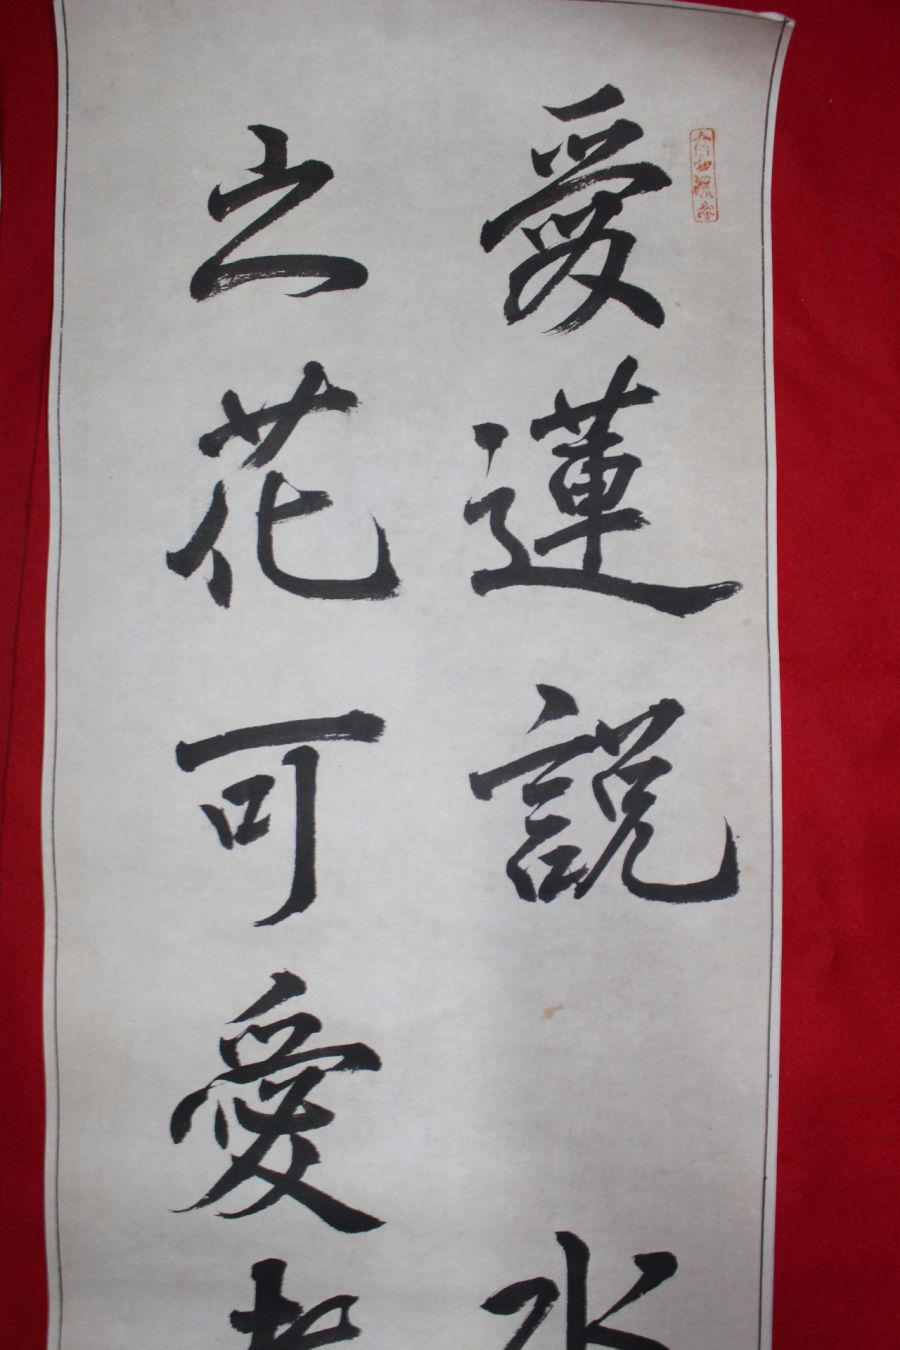 愛蓮說 水
之花可愛者